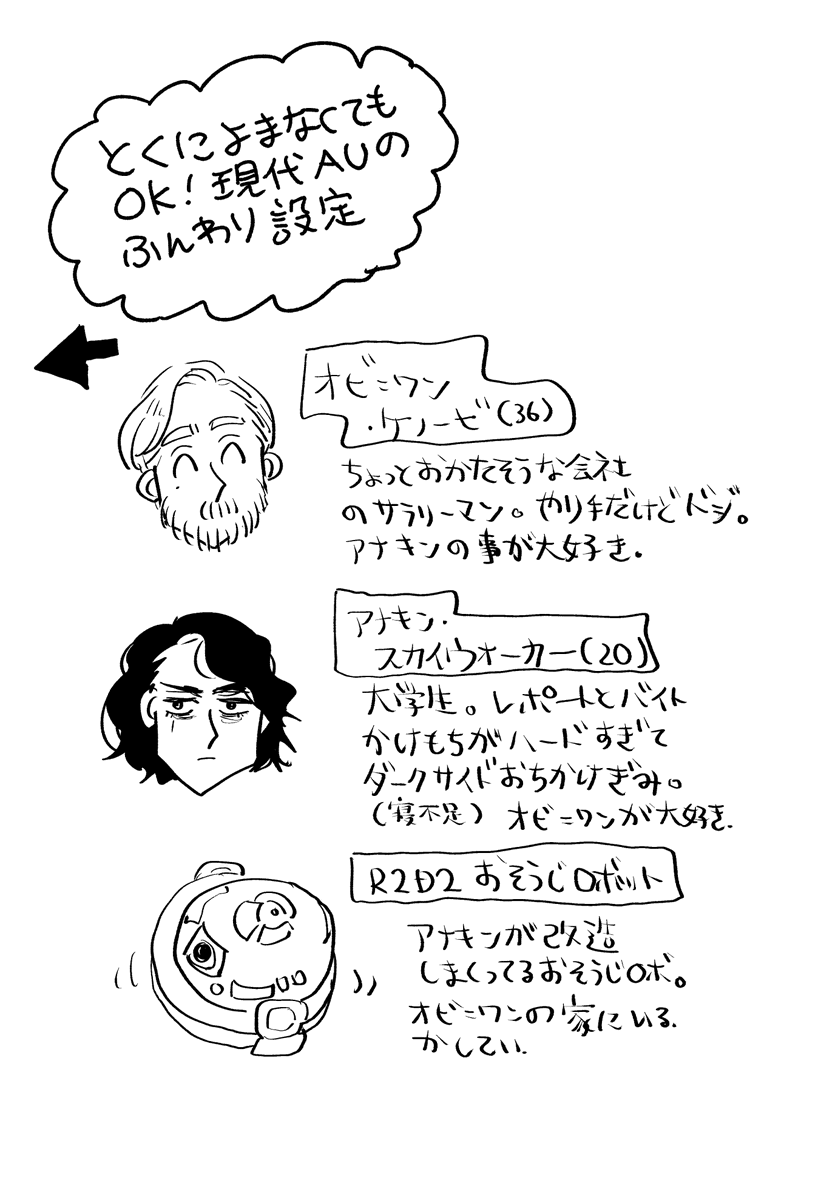 とくによまなくても
OK!現代AUの
ふんわり設定
オビ=ワン
・ケノービ(36)
ちょっとおかたそうな会社
のサラリーマン。やり手だけどドジ。
アナキンの事が大好き.
アナキン・
スカイウォーカー(20)
大学生。レポートとバイト
かけもちがハードすぎて
ダークサイドおちかけぎみ。
(寝不足)オビ=ワンが大好き.
R2D2おそうじロボット
アナキンが改造
しまくってるおそうじロボ。
オビ=ワンの家にいる.
かしこい.